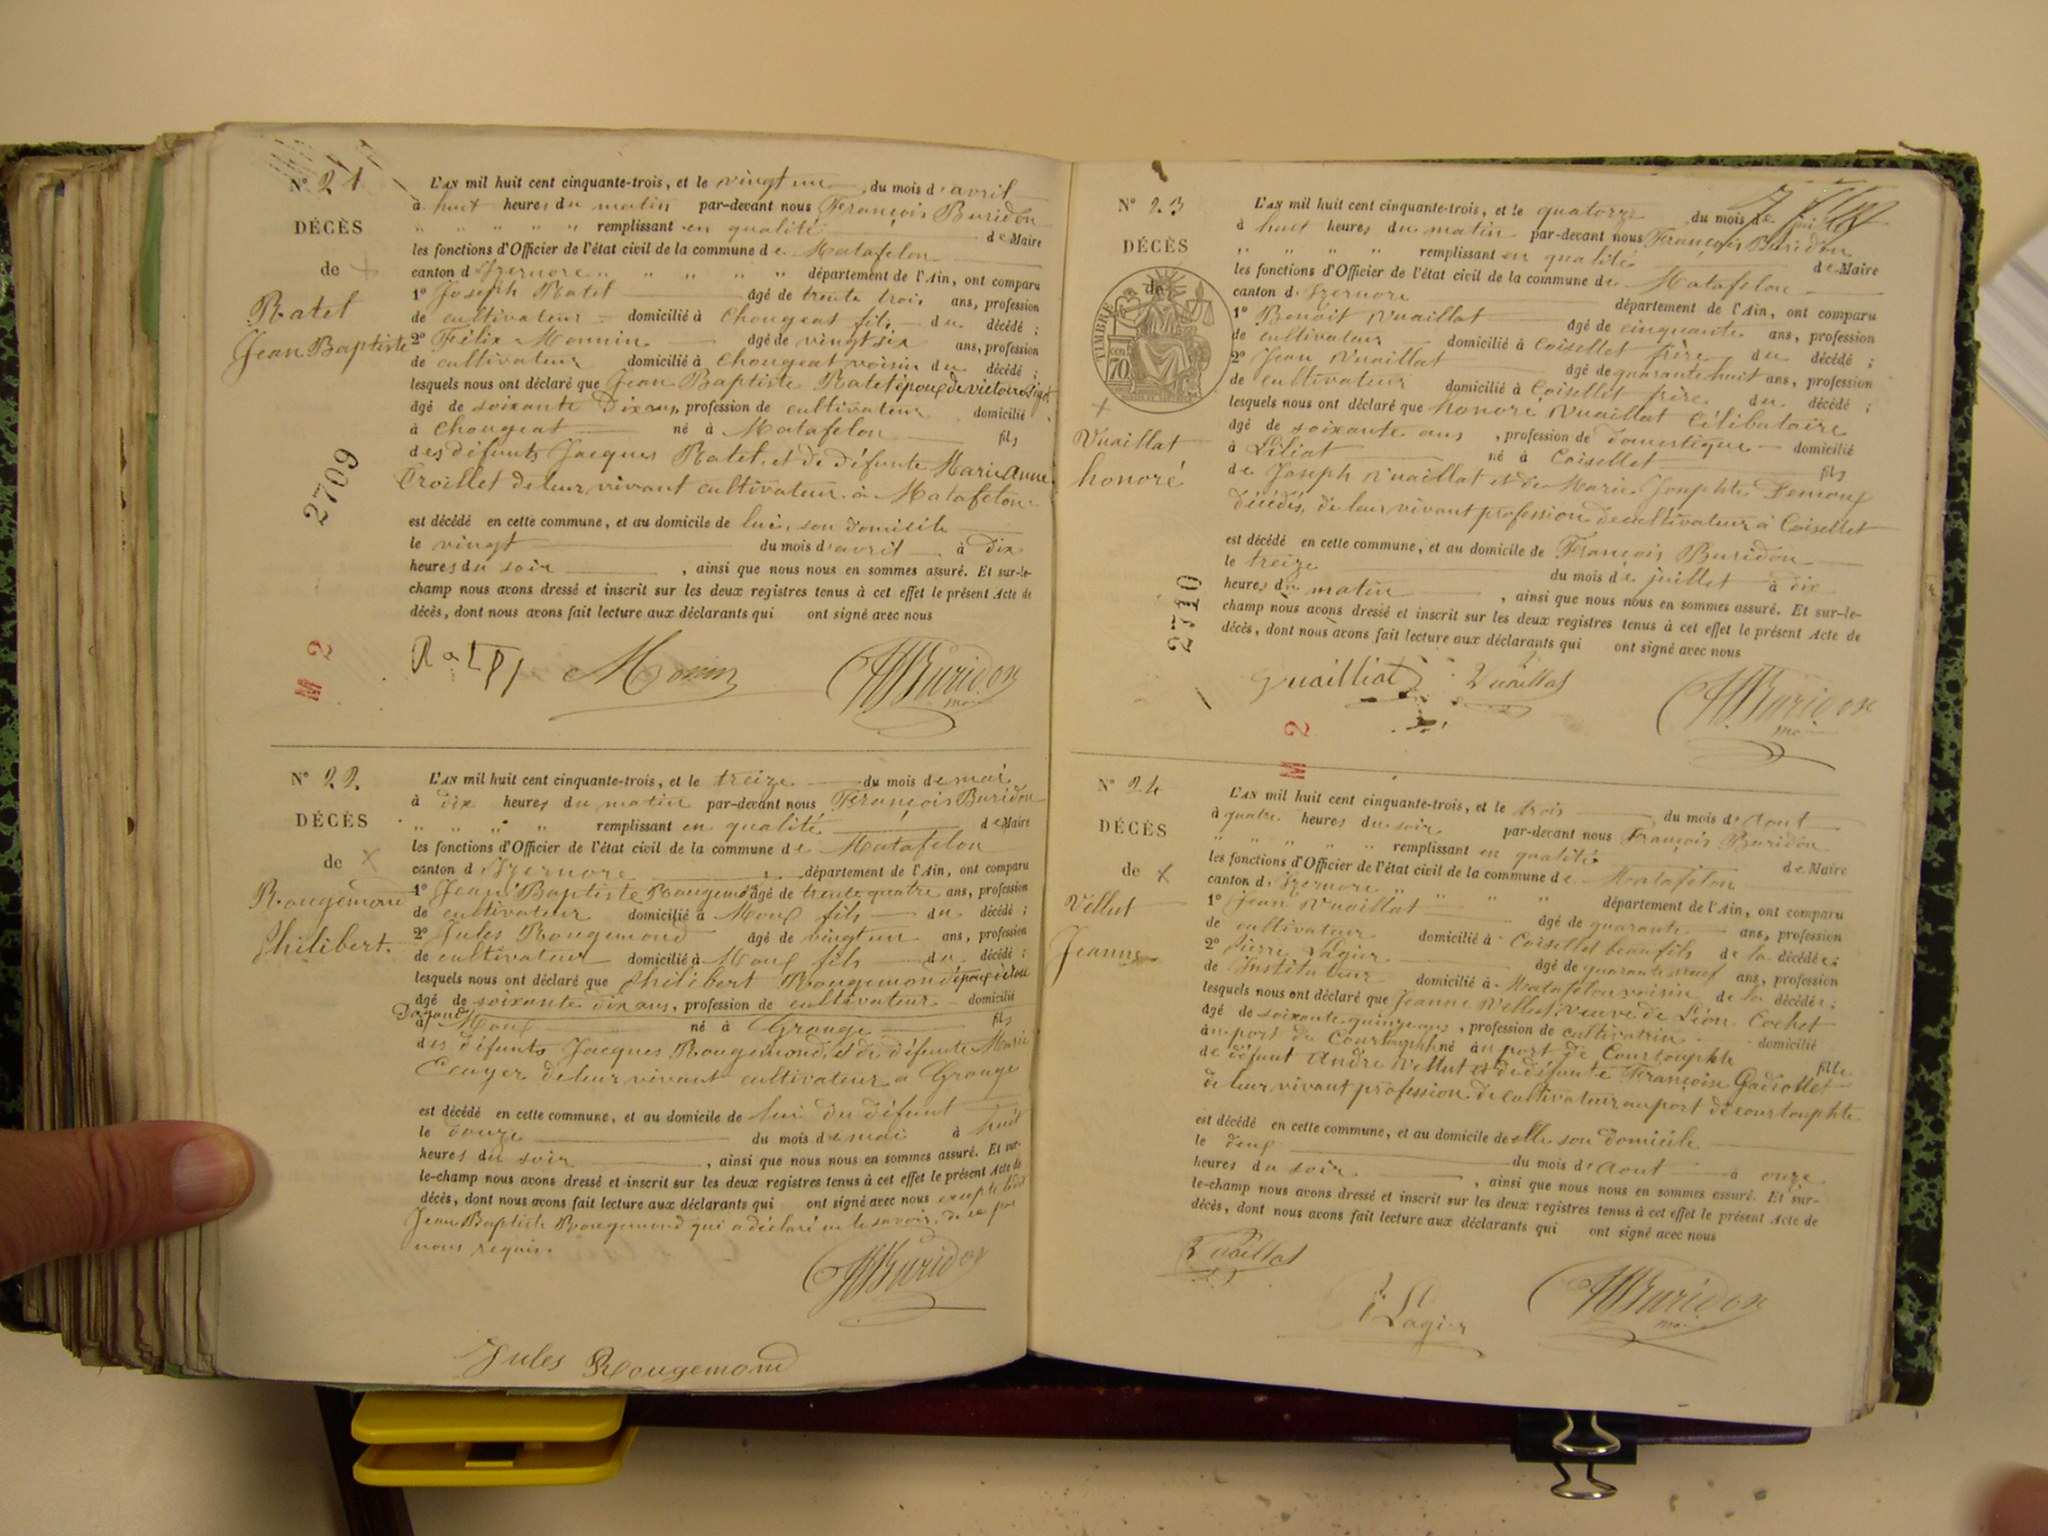 N° 21
DÉCÈS
de
Ratel
Jean Baptiste
2709
M 2
L'AN mil huit cent cinquante-trois, et le vingt un du mois d'avril
à huit heures du matin par-devant nous François Buridon
" " " " " remplissant en qualité de Maire
les fonctions d'Officier de l'état civil de la commune de Matafelon
canton d'Izernore " " " " " département de l'Ain, ont comparu
1° Joseph Ratel âgé de trente trois ans, profession
de cultivateur domicilié à Chougeat fils du décédé ;
2° Félix Monnin âgé de vingt six ans, profession
de cultivateur domicilié à Chougeat voisin du décédé ;
lesquels nous ont déclaré que Jean Baptiste Ratel époux de victoire
âgé de soixante Dix ans, profession de cultivateur domicilié
à Chougeat né à Matafelon fils
des défunts Jacques Ratel, et de défunte Marie Anne
Troillet de leur vivant cultivateur à Matafelon
est décédé en cette commune, et au domicile de lui, son domicile
le vingt du mois d'avril à Dix
heures du soir , ainsi que nous nous en sommes assuré. Et sur-le-
champ nous avons dressé et inscrit sur les deux registres tenus à cet effet le présent Acte de
décès, dont nous avons fait lecture aux déclarants qui ont signé avec nous
Monin Buridon
N° 22
DÉCÈS
de
Rougemond
Philibert.
L'AN mil huit cent cinquante-trois, et le treize du mois de mai
à dix heures du matin par-devant nous François Buridon
" " " " remplissant en qualité de Maire
les fonctions d'Officier de l'état civil de la commune de Matafelon
canton d'Izernore département de l'Ain, ont comparu
1° Jean Baptiste Rougemond âgé de trente quatre ans, profession
de cultivateur domicilié à Moux fils du décédé ;
2° Jules Rougemond âgé de vingt un ans, profession
de cultivateur domicilié à Moux fils du décédé ;
lesquels nous ont déclaré que Philibert Rougemond époux
âgé de soixante dix ans, profession de cultivateur domicilié
à Moux né à Grange fils
des défunts Jacques Rougemond, et de défunte Marie
Ecuyer de leur vivant cultivateur a Grange
est décédé en cette commune, et au domicile de lui du défunt
le douze du mois de mai à huit
heures du soir , ainsi que nous nous en sommes assuré. Et sur-
le-champ nous avons dressé et inscrit sur les deux registres tenus à cet effet le présent Acte de
décès, dont nous avons fait lecture aux déclarants qui ont signé avec nous excepté
Jean Baptiste Rougemond qui a déclaré ne le savoir, de ce par
nous requis.
Buridon
Jules Rougemond
N° 23
DÉCÈS
de
TIMBRE
70
Vuaillat
honoré
2710
M 2
L'AN mil huit cent cinquante-trois, et le quatorze du mois de juillet
à huit heures du matin par-devant nous François Buridon
" " " " remplissant en qualité de Maire
les fonctions d'Officier de l'état civil de la commune de Matafelon
canton d'Izernore département de l'Ain, ont comparu
1° Benoit Vuaillat âgé de cinquante ans, profession
de cultivateur domicilié à Coisellet frère du décédé ;
2° Jean Vuaillat âgé de quarante huit ans, profession
de cultivateur domicilié à Coisellet frère du décédé ;
lesquels nous ont déclaré que honoré Vuaillat Célibataire
âgé de soixante ans , profession de domestique domicilié
à Liliat né à Coisellet fils
de Joseph Vuaillat et de Marie Josephte
décédés, de leur vivant profession de cultivateur à Coisellet
est décédé en cette commune, et au domicile de François Buridon
le treize du mois de juillet à dix
heures du matin , ainsi que nous nous en sommes assuré. Et sur-le-
champ nous avons dressé et inscrit sur les deux registres tenus à cet effet le présent Acte de
décès, dont nous avons fait lecture aux déclarants qui ont signé avec nous
Vuailliat Vuaillat Buridon
N° 24
DÉCÈS
de
Vellut
Jeanne
L'AN mil huit cent cinquante-trois, et le trois du mois d'Aout
à quatre heures du soir par-devant nous François Buridon
" " " " remplissant en qualité de Maire
les fonctions d'Officier de l'état civil de la commune de Matafelon
canton d'Izernore " " " " département de l'Ain, ont comparu
1° Jean Vuaillat âgé de quarante ans, profession
de cultivateur domicilié à Coisellet beau fils de la décédée ;
2° Pierre Lagier âgé de quarante neuf ans, profession
de Instituteur domicilié à Matafelon voisin de la décédée ;
lesquels nous ont déclaré que Jeanne Vellut, veuve de Léon Cochet
âgé de soixante quinze ans , profession de cultivatrice domicilié
au port de Courtouphle né au port de Courtouphle fille
de défunt André Vellut et de défunte Françoise Gadiollet
de leur vivant profession de cultivateur au port de courtouphle
est décédé en cette commune, et au domicile de elle son domicile
le deux du mois d'Aout à onze
heures du soir , ainsi que nous nous en sommes assuré. Et sur-
le-champ nous avons dressé et inscrit sur les deux registres tenus à cet effet le présent Acte de
décès, dont nous avons fait lecture aux déclarants qui ont signé avec nous
Vuaillat
Lagier Buridon